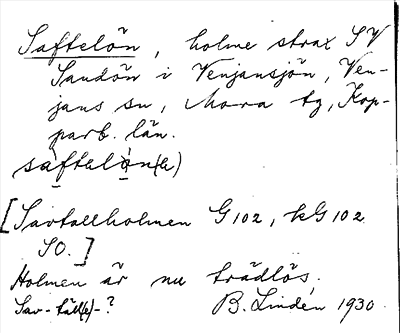 Saftelön, holme strax SV
Sandön i Venjansjön, Ven-
jans sn, Mora tg, Kop-
parb. län.
saftelön(e)
[Savtallholmen G102, kG102
SO.]
Holmen är nu trädlös.
Sav- täll(e)-? B. Lindén 1930